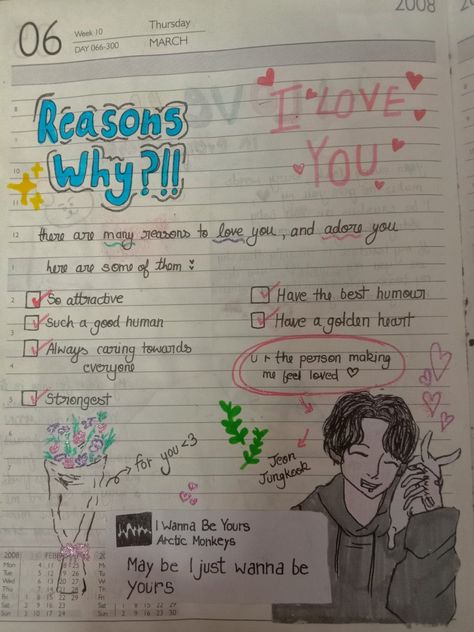 2008
06
Week 10
DAY 066-300
Thursday
MARCH
Reasons
Why?!!
I LOVE
YOU
there are many reasons to love you, and adore you
here are some of them
So attractive
Such a good human
Always caring towards
everyone
Strongest
Have the best humour
Have a golden heart
u r the person making
me feel loved ♡
Jeon
Jungkook
for you <3
I Wanna Be Yours
Arctic Monkeys
May be I just wanna be
yours
2008
Mon
Tue
Wed
Thu
Fri
Sat
Sun